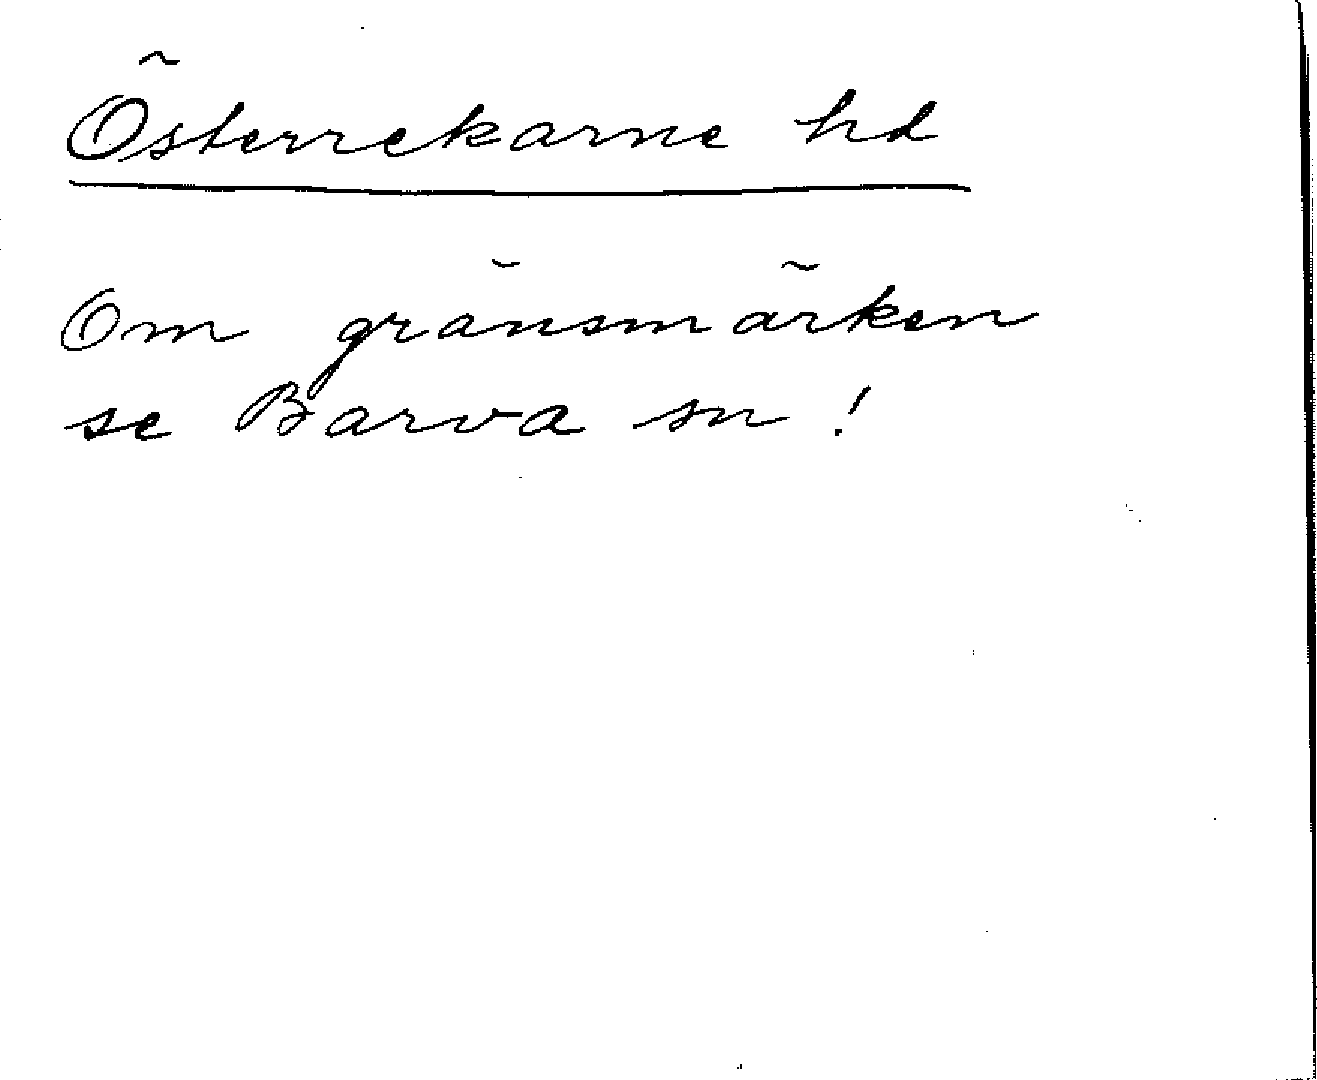 Österrekarne hd
Om gränsmärken
se Barva sn!